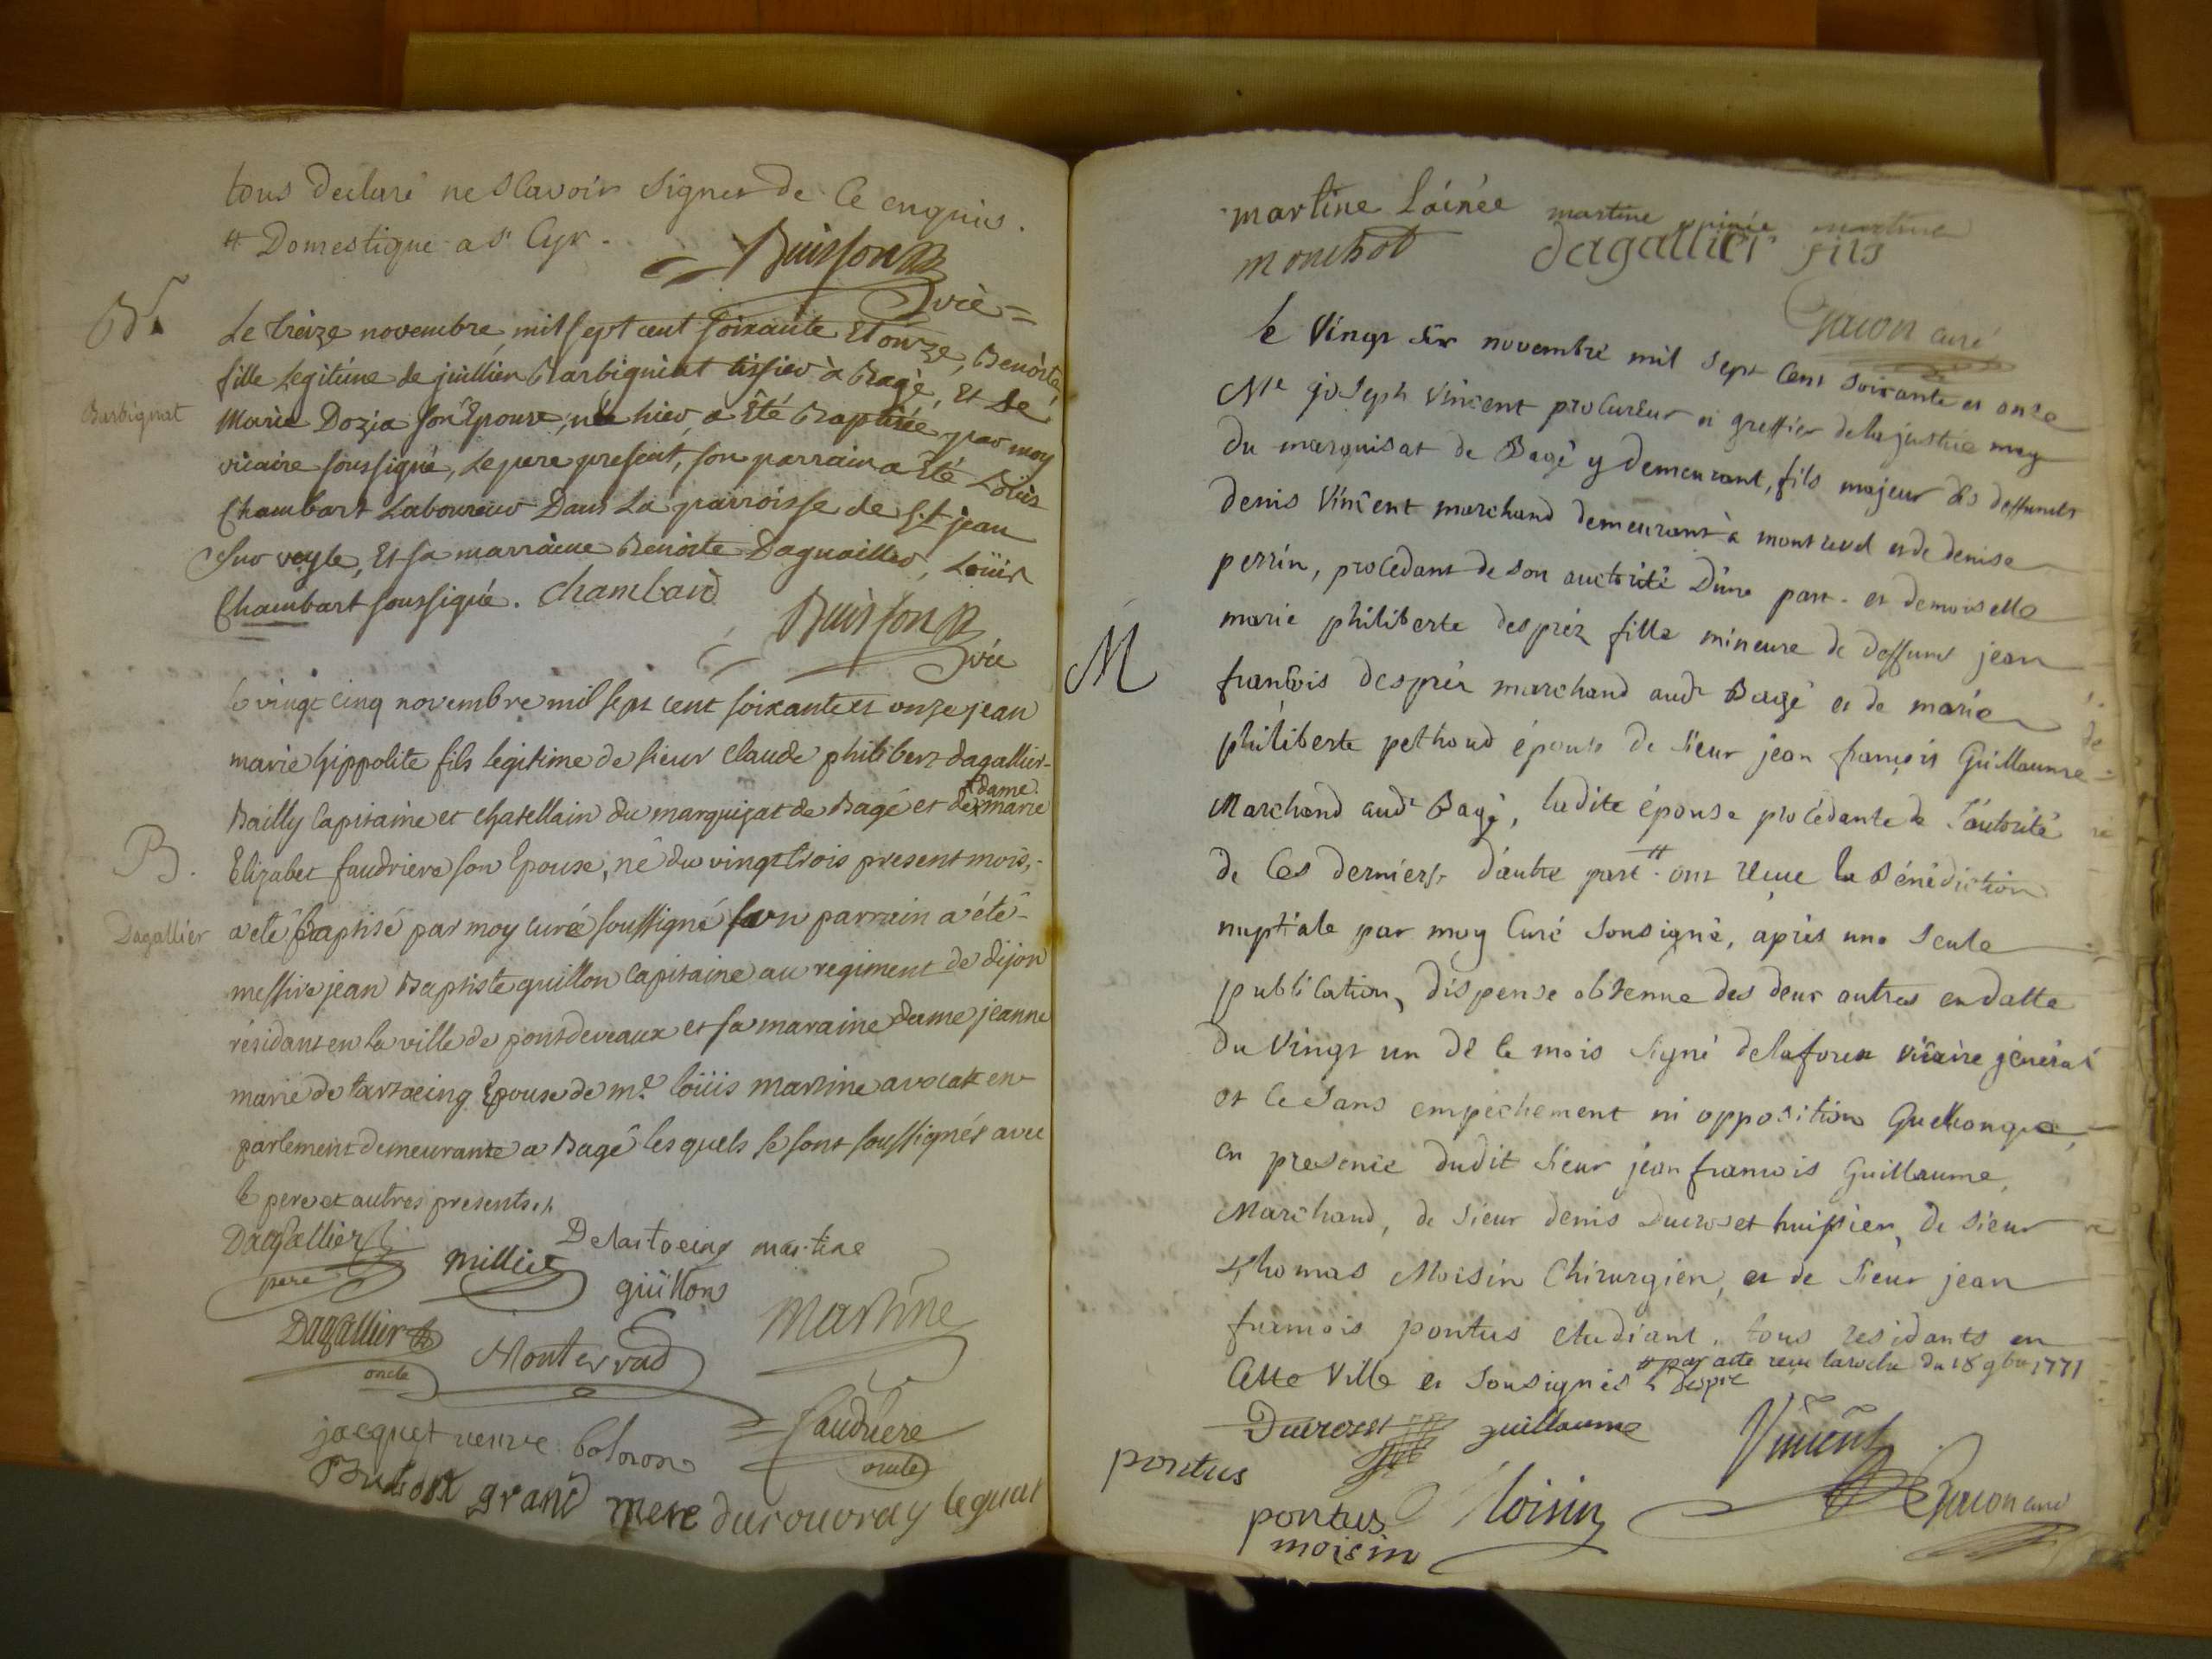 tous declaré ne Scavoir Signer de Ce enquis.
# Domestique a St Cyr.
Buisson
vic=
Bt.
Le treize novembre, mil sept cent soixante Et onze, Benoite
fille Legitime de juillien Barbigniat tissier à Bagé, Et de
Barbignat
Marie Dozia son Epouse, née hier, a Eté Baptisée par moy
vicaire soussigné, Le pere present, son parrain a Eté Loüis
Chambart Laboureur Dans La parroisse de St jean
Sur veyle, Et sa marraine Benoite Dagnailler, Loüis
Chambart soussigné. Chambard
Buisson
vic
le vingt cinq novembre mil sept cent soixante et onze jean
marie hippolite fils legitime de sieur claude philibert dagallier
dame
Bailly Capitaine et chatellain du marquisat de Bagé et de marie
B.
Elizabet faudriere son Epouse, né du vingt trois present mois,
Dagallier
a été baptisé par moy curé soussigné son parrain a été
messire jean Baptiste guillon Capitaine au regiment de dijon
résidant en la ville de pontdeveaux et sa maraine dame jeanne
marie de lartoeing Epouse de me. loüis martine avocat en
parlement demeurante a Bagé lesquels se sont soussignés avec
le pere et autres presents.
Dagallier
pere
millier
Delartoeing martine
guillon
martine
Dagallier
oncle
Monterrad
faudriere
oncle
jacquet veuve
grand mere durouvray leguat
martine L'ainée
martine
martine
monchot
dagallier fils
Gacon curé
le Vingt six novembre mil sept Cent soixante et onze
Me joseph Vincent procureur et greffier de la justice mag
du marquisat de Bagé y demeurant, fils majeur des deffunts
denis Vincent marchand demeurant à montrevel et de denise
perrin, procédant de son auctorité D'une part. et demoiselle
M
marie philiberte despréz fille mineure de deffunt jean
françois despréz marchand audt Bagé et de marie
philiberte pethoud épouse de sieur jean françois Guillaume
Marchand audt Bagé, ladite épouse procédante de l'autorité
de Ces derniers d'autre part # ont reçue la Bénédiction
nuptiale par moy Curé Sousigné, après une Seule
publication, dispense obtenue des deux autres en datte
du Vingt un de ce mois signé delaforest vicaire général
et Ce Sans empêchement ni opposition Quelconque,
en presence dudit Sieur jean francois Guillaume,
Marchand, de Sieur denis Ducroset huissier, de Sieur
Thomas Moisin Chirurgien, et de Sieur jean
francois pontus etudiant, tous residants en
Cette Ville et Sousignés
# par acte reçu laroche du 18 9bre 1771
Despré
Ducroset
guillaume
Vincent
pontus
pontus
moisin
Moisin
Gacon curé